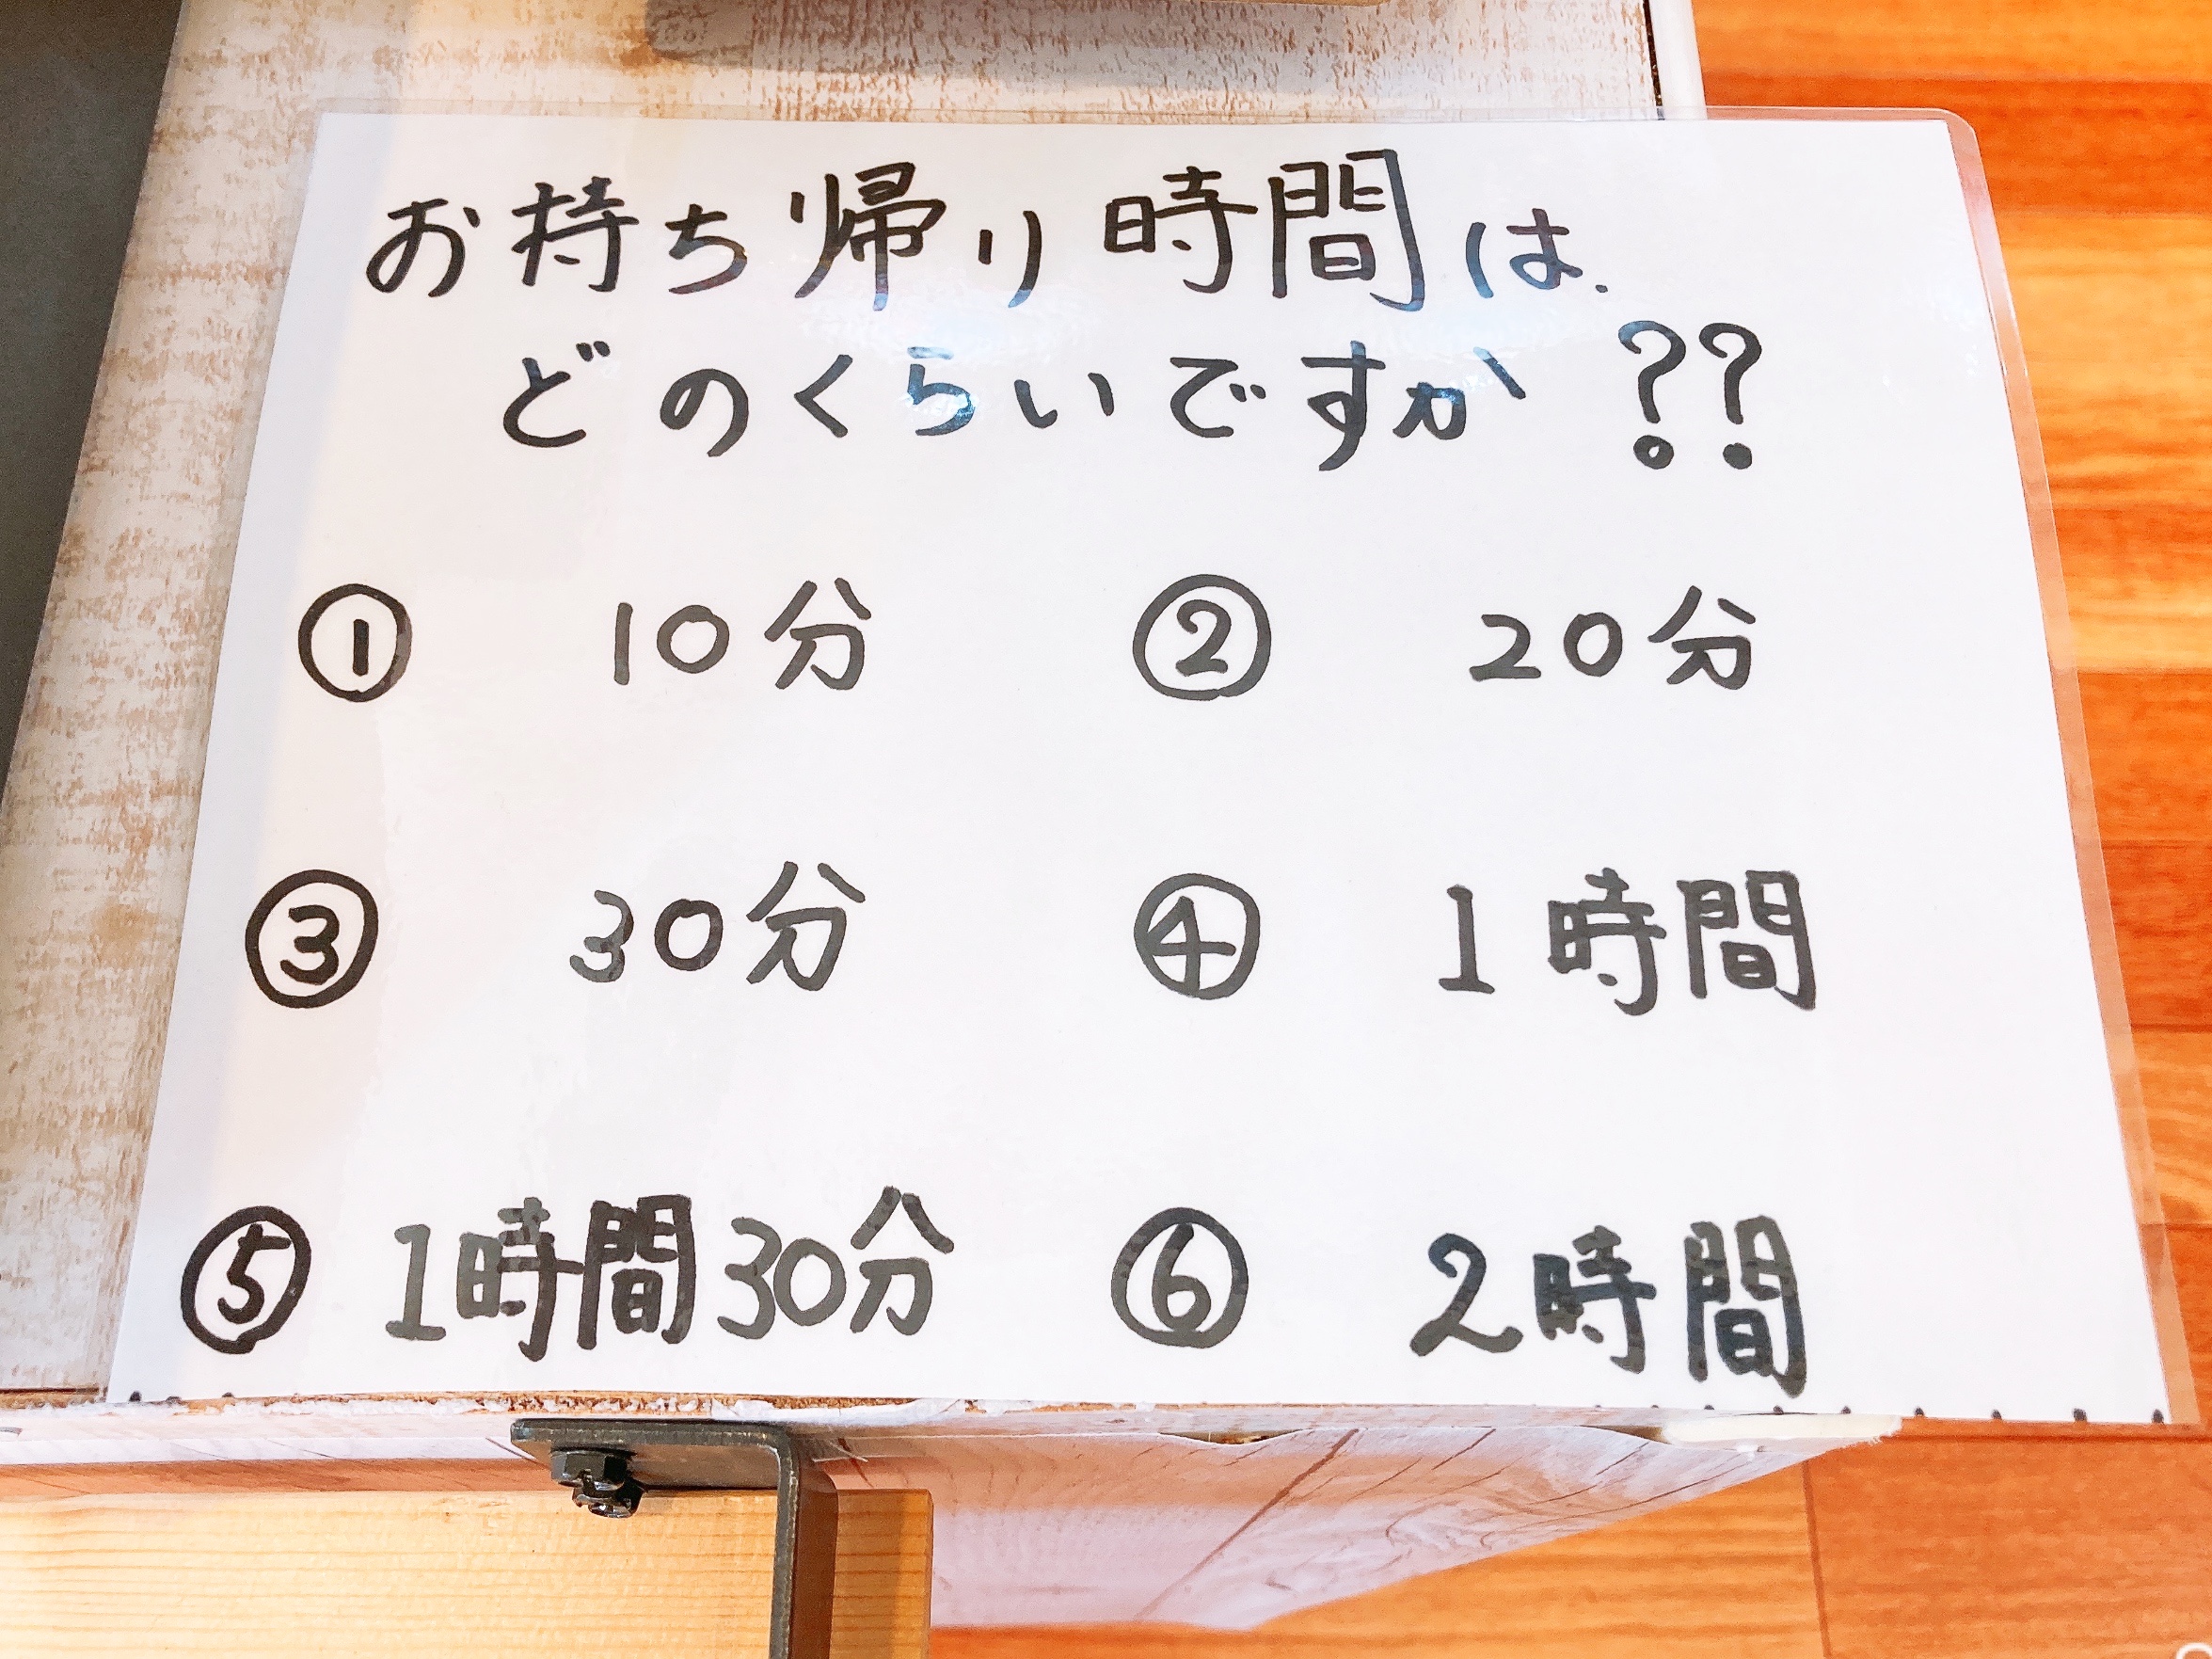 お持ち帰り時間は.
どのくらいですか??
① 10分 ② 20分
③ 30分 ④ 1時間
⑤ 1時間30分 ⑥ 2時間